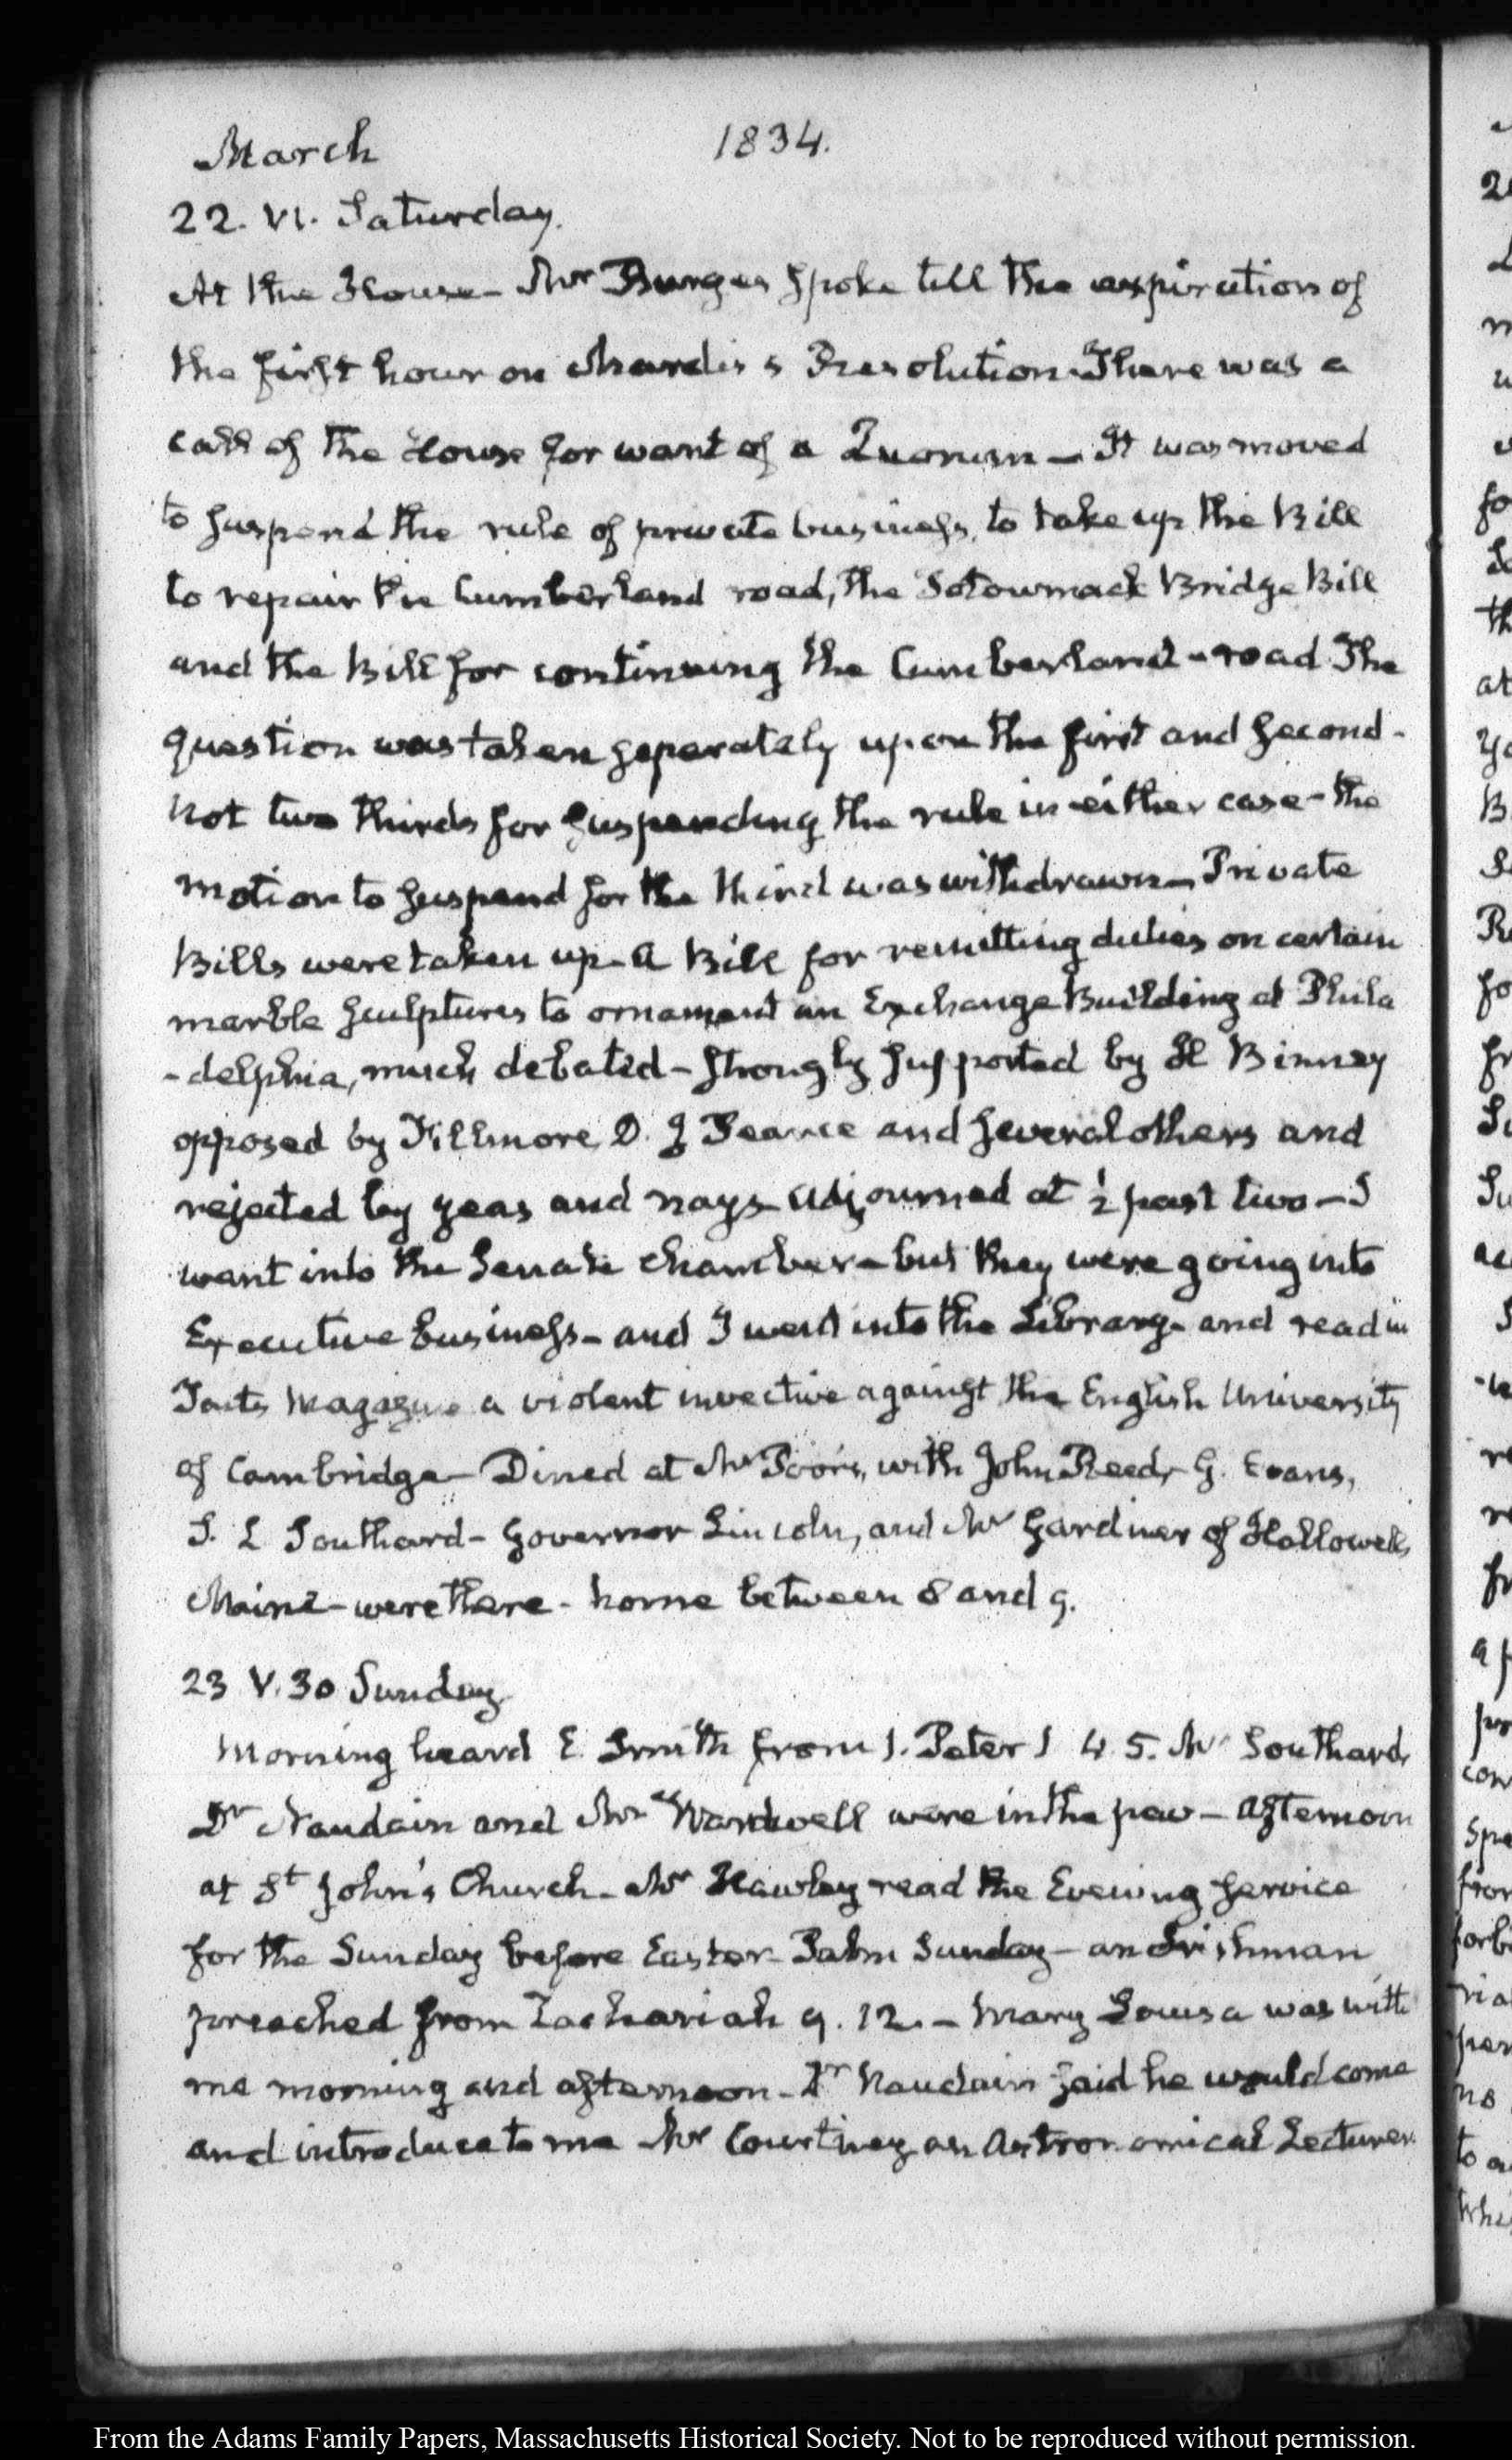 March 1834.
22. VI. Saturday.
At the House - Mr Burges spoke till the expiration of
the first hour on Mardis's Resolution. There was a
call of the House for want of a Quorum - It was moved
to suspend the rule of private business, to take up the Bill
to repair the Cumberland road, the Potowmack Bridge Bill
and the Bill for continuing the Cumberland-road. The
question was taken seperately upon the first and second -
not two thirds for suspending the rule in either case - the
motion to suspend for the third was withdrawn - Private
Bills were taken up - A Bill for remitting duties on certain
marble sculptures to ornament an Exchange Building at Phila
-delphia, much debated - strongly supported by H Binney
opposed by Fillmore, D. J Pearce and several others and
rejected by yeas and nays - Adjourned at ½ past two - I
went into the Senate chamber - but they were going into
Executive business - and I went into the Library - and read in
Taits Magazine a violent invective against the English University
of Cambridge - Dined at Mr Poor's, with John Reed, G. Evans,
S. L Southard - Governor Lincoln, and Mr Gardiner of Hallowell,
Maine - were there - home between 8 and 9.
23 V.30 Sunday
Morning heard E. Smith from 1. Peter 1 4 5. Mr Southard,
Dr Naudain and Mr Wardwell were in the pew - afternoon
at St John's Church - Mr Hawley read the Evening service
for the Sunday before Easter - Palm Sunday - an Irishman
preached from Zachariah 9. 12. - Mary Louisa was with
me morning and afternoon - Dr Naudain said he would come
and introduce to me Mr Courtney an Astronomical Lecturer.
From the Adams Family Papers, Massachusetts Historical Society. Not to be reproduced without permission.